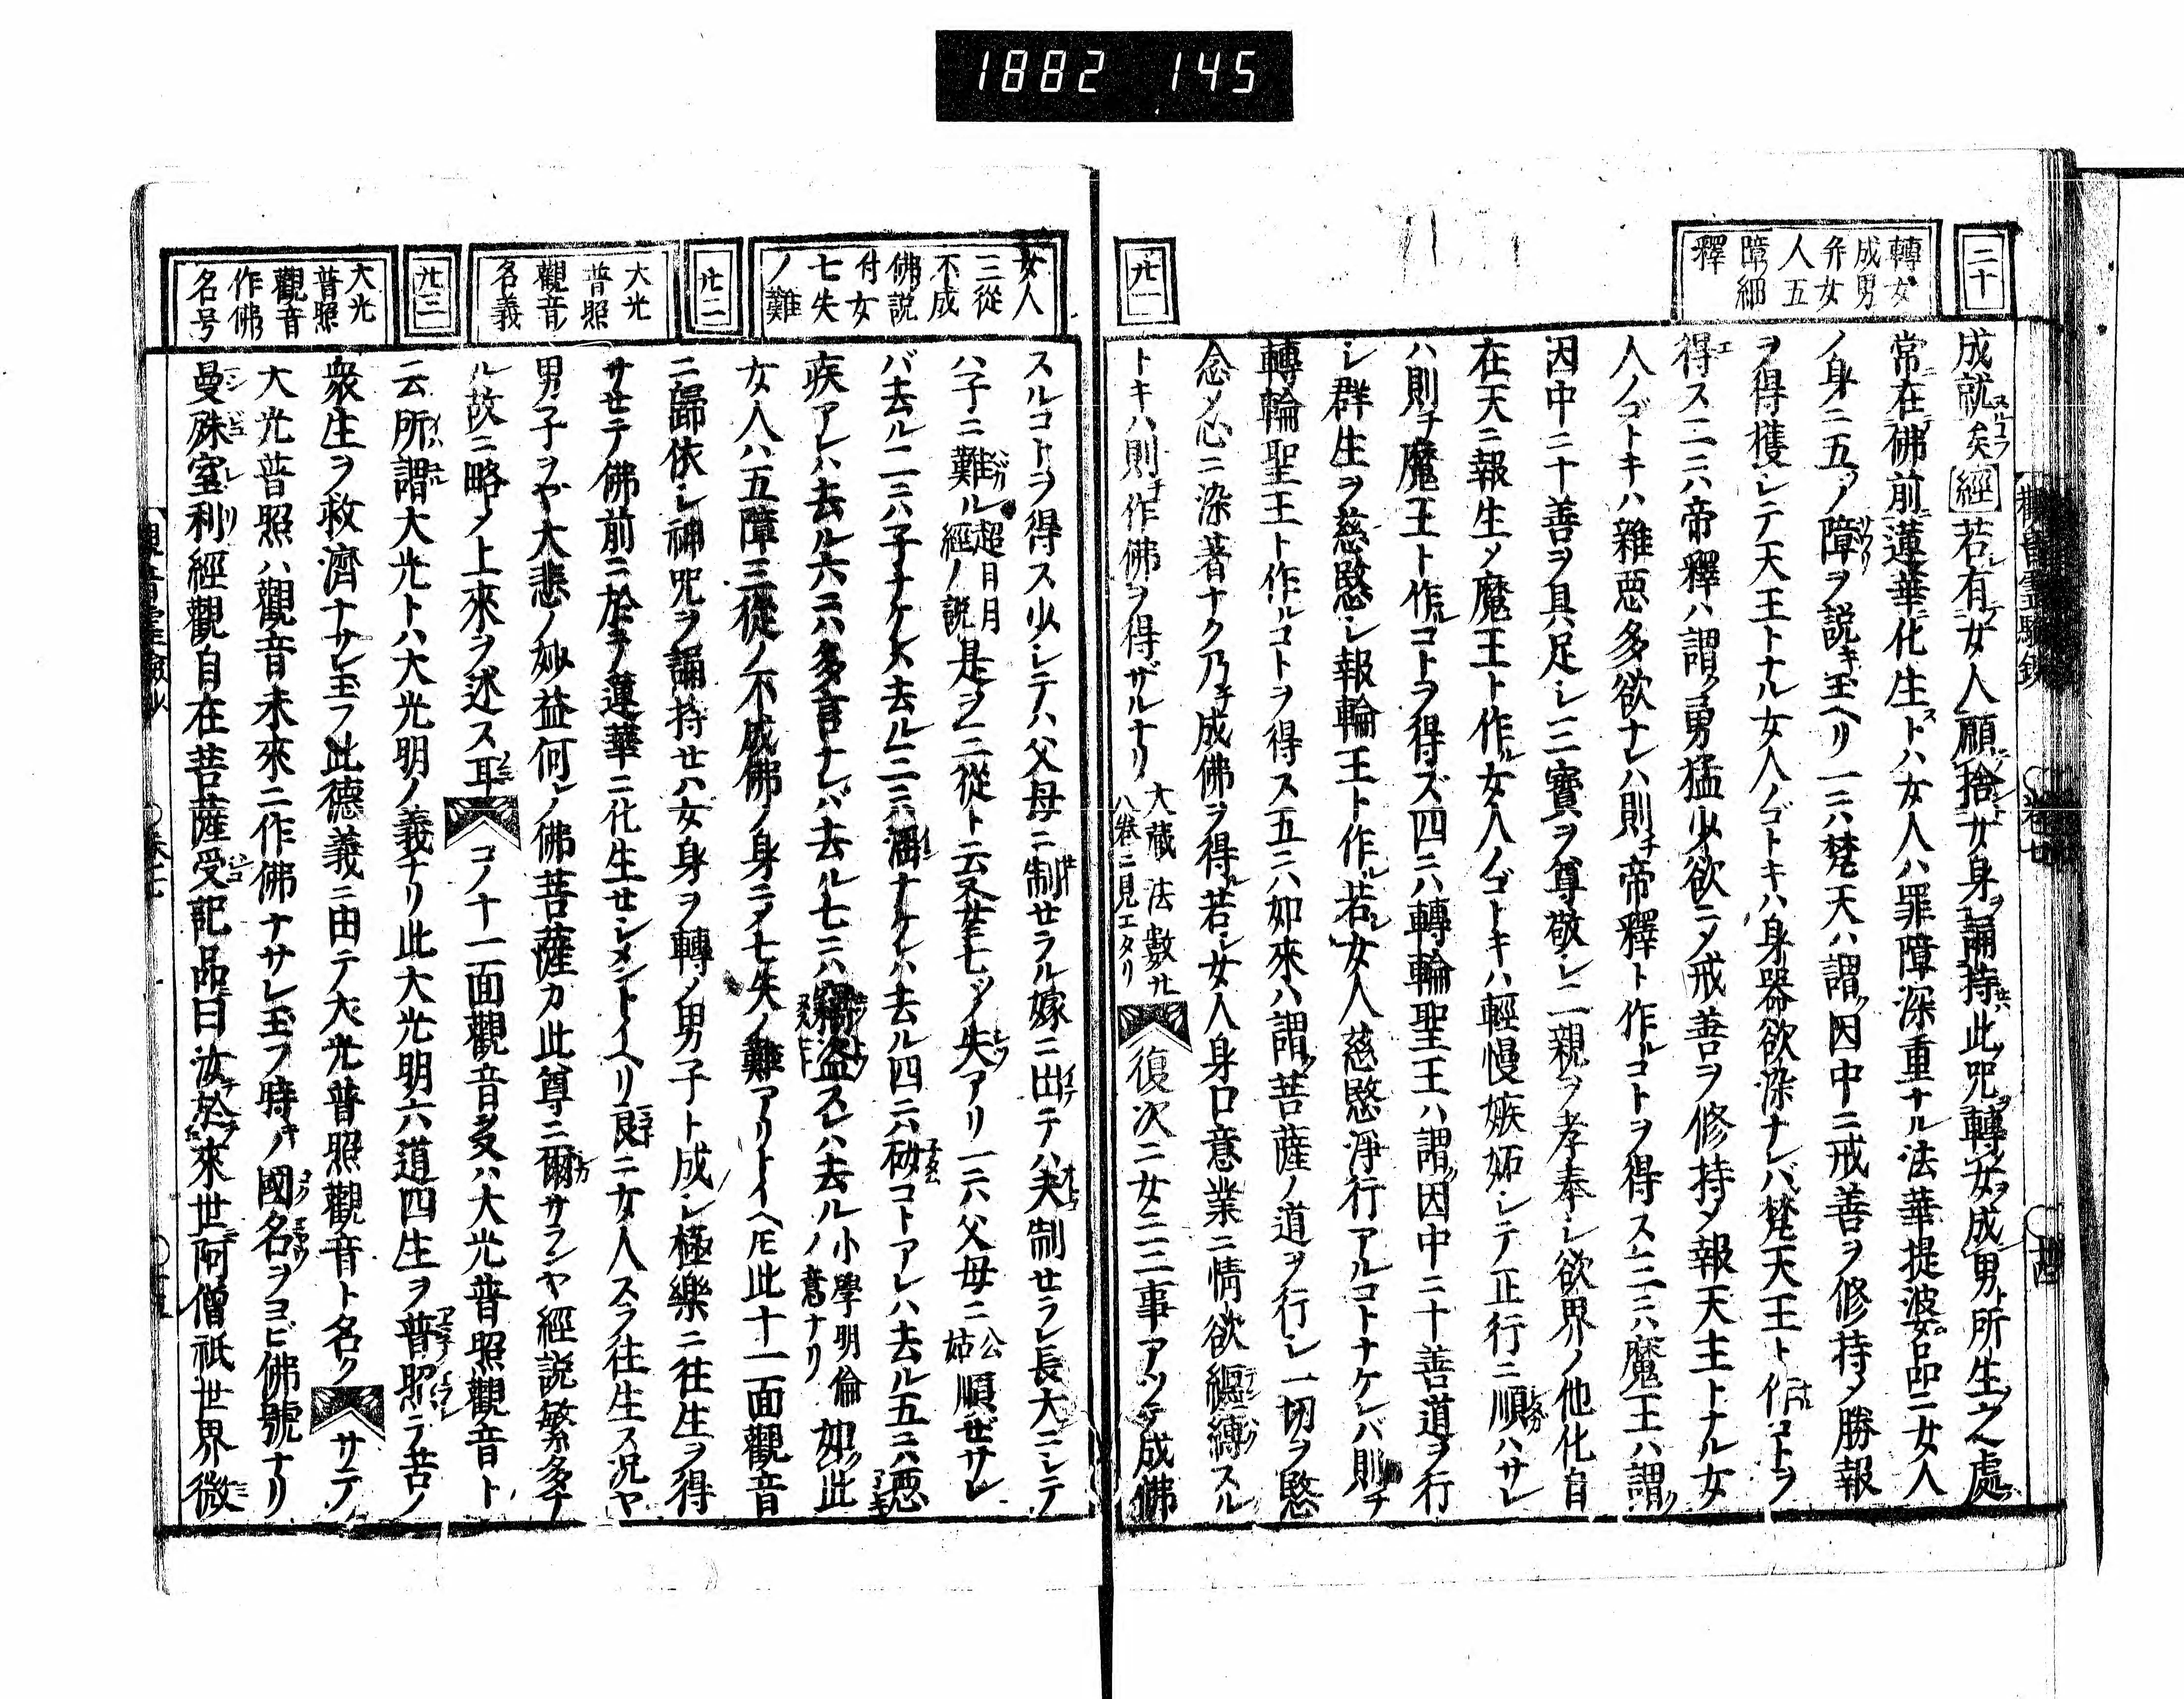 1882 145
二十
轉女
成男
并女
人五
障細
釋
成就スルコヲ矣經若有女人願捨女身ヲ誦持セハ此呪轉女ヲ成男ト所生之處
常在佛前蓮華化生ストハ女人ハ罪障深重ナル法華提婆品ニ女人
ノ身ニ五ノ障ヲ説キ玉ヘリ一ニハ梵天ハ謂ク因中ニ戒善ヲ修持メ勝報
ヲ得獲レテ天王トナル女人ノゴトキハ身器欲染ナレバ梵天王ト作コトヲ
得ス二ニハ帝釋ハ謂ク勇猛少欲ニメ戒善ヲ修持メ報天主トナル女
人ノゴトキハ雜惡多欲ナレハ則チ帝釋ト作ルコトヲ得ス三ニハ魔王ハ謂ク
因中ニ十善ヲ具足シ三寶ヲ尊敬シ二親ヲ孝奉シ欲界ノ他化自
在天ニ報生メ魔王ト作ル女人ノゴトキハ輕慢嫉妬シテ正行ニ順ハサレ
ハ則チ魔王ト作ルコトヲ得ズ四ニハ轉輪聖王ハ謂ク因中ニ十善道ヲ行
シ群生ヲ慈愍シ報輪王ト作ル若シ女人慈愍淨行アルコトナケレバ則チ
轉輪聖王ト作ルコトヲ得ス五ニハ如來ハ謂ク菩薩ノ道ヲ行シ一切ヲ愍
念メ心ニ染著ナク乃チ成佛ヲ得ル若シ女人身口意業ニ情欲纒縛スル
廿一
トキハ則チ作佛ヲ得ザルナリ大藏法數廿八卷ニ見エタリ復次ニ女ニ三事アツテ成佛
女人
三從
不成
佛説
付女
七失
ノ難
スルコトヲ得ス少シテハ父母ニ制セラル嫁ニ出テハ夫制セラレ長大ニシテ
ハ子ニ難ル超日月經ノ説是ヲ三從ト云又女ニ七ツノ失アリ一ニハ父母ニ公姑順ゼサレ
バ去ル二ニハ子ナケレハ去ル三ニハ淫ナケレハ去ル四ニハ妬コトアレハ去ル五ニハ惡
疾アレハ去ル六ニハ多言ナレハ去ル七ニハ竊盜スレハ去ル小學明倫ノ意ナリ如此
女人ハ五障三從ノ不成佛ノ身ニメ七失ノ難アリトイヘ𪜈此十一面觀音
廿二
ニ歸依シ神呪ヲ誦持セハ女身ヲ轉メ男子ト成シ極樂ニ往生ヲ得
サセテ佛前ニ於テ蓮華ニ化生セシメントイヘリ良ニ女人スラ往生ス況ヤ
大光
普照
觀音ノ
名義
男子ヲヤ大悲ノ妙益何レノ佛菩薩カ此尊ニ爾サランヤ經説繁多ナ
ル故ニ略メ上來ヲ述ス耳コノ十一面觀音多ハ大光普照觀音ト
廿三
云所謂大光トハ大光明ノ義ナリ此大光明六道四生ヲ普照テ苦ノ
衆生ヲ救濟ナサレ玉フ此德義ニ由テ大光普照觀音ト名クサテ
大光
普照
觀音
作佛
名号
大光普照ハ觀音未來ニ作佛ナサレ玉フ時キノ國名ヲヨビ佛號ナリ
曼殊室利經觀自在菩薩受記品曰汝於來世阿僧祇世界微